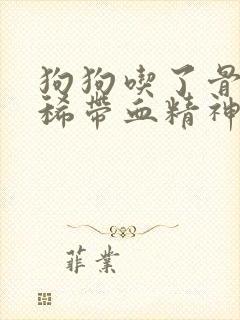 狗狗喫了骨
稀帶血精神
菲業